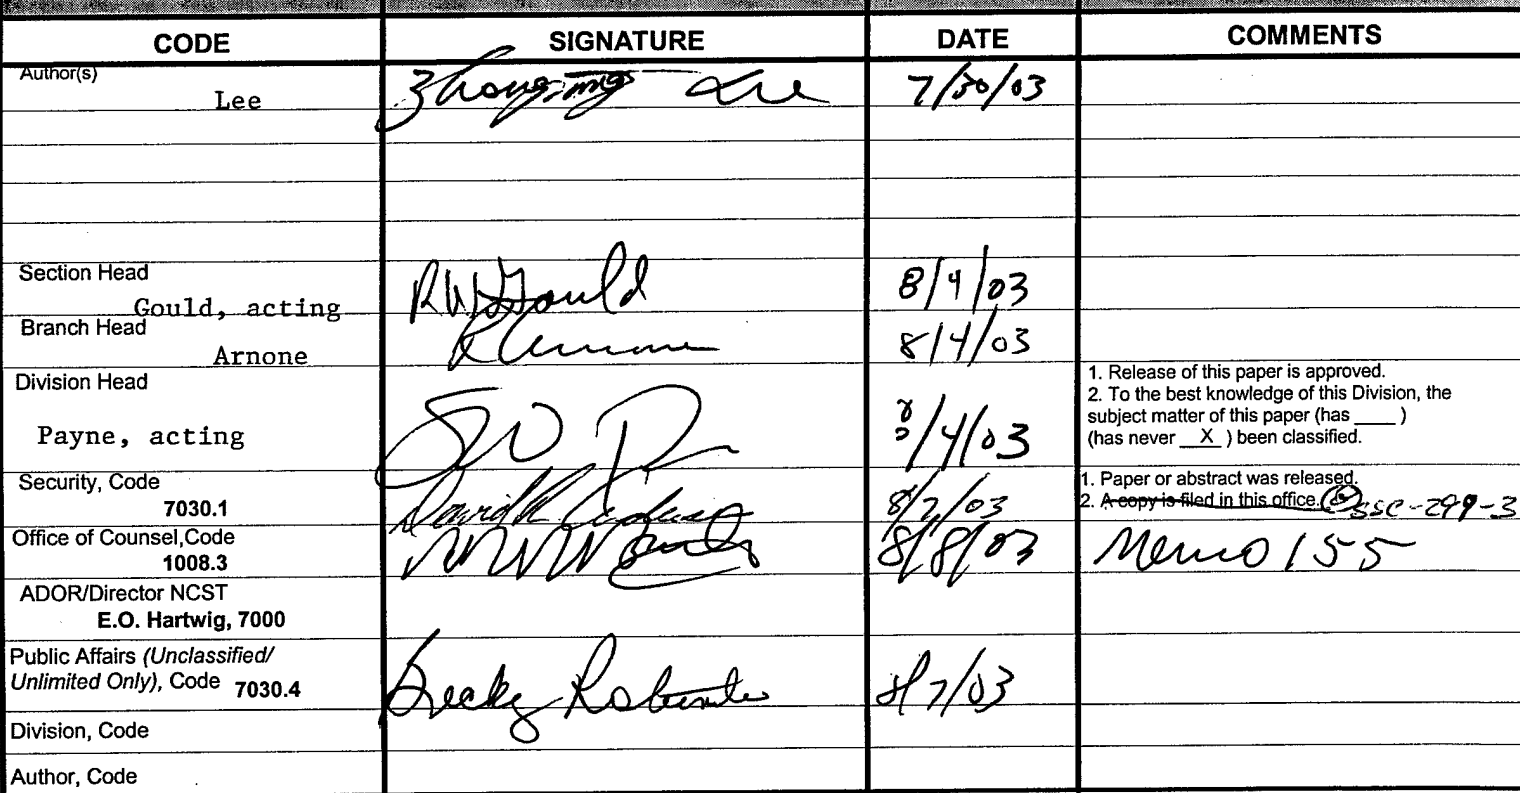 CODE SIGNATURE DATE COMMENTS
Author(s)
Lee Lee 7/30/03
Section Head
Gould, acting RWGould 8/4/03
Branch Head
Arnone 8/4/03
Division Head
Payne, acting 8/4/03
1. Release of this paper is approved.
2. To the best knowledge of this Division, the
subject matter of this paper (has ____ )
(has never X ) been classified.
Security, Code
7030.1 David 8/7/03
1. Paper or abstract was released.
2. A copy is filed in this office. SSC-299-3
Office of Counsel,Code
1008.3 8/8/03 Memo 155
ADOR/Director NCST
E.O. Hartwig, 7000
Public Affairs (Unclassified/
Unlimited Only), Code 7030.4 Becky 8/7/03
Division, Code
Author, Code